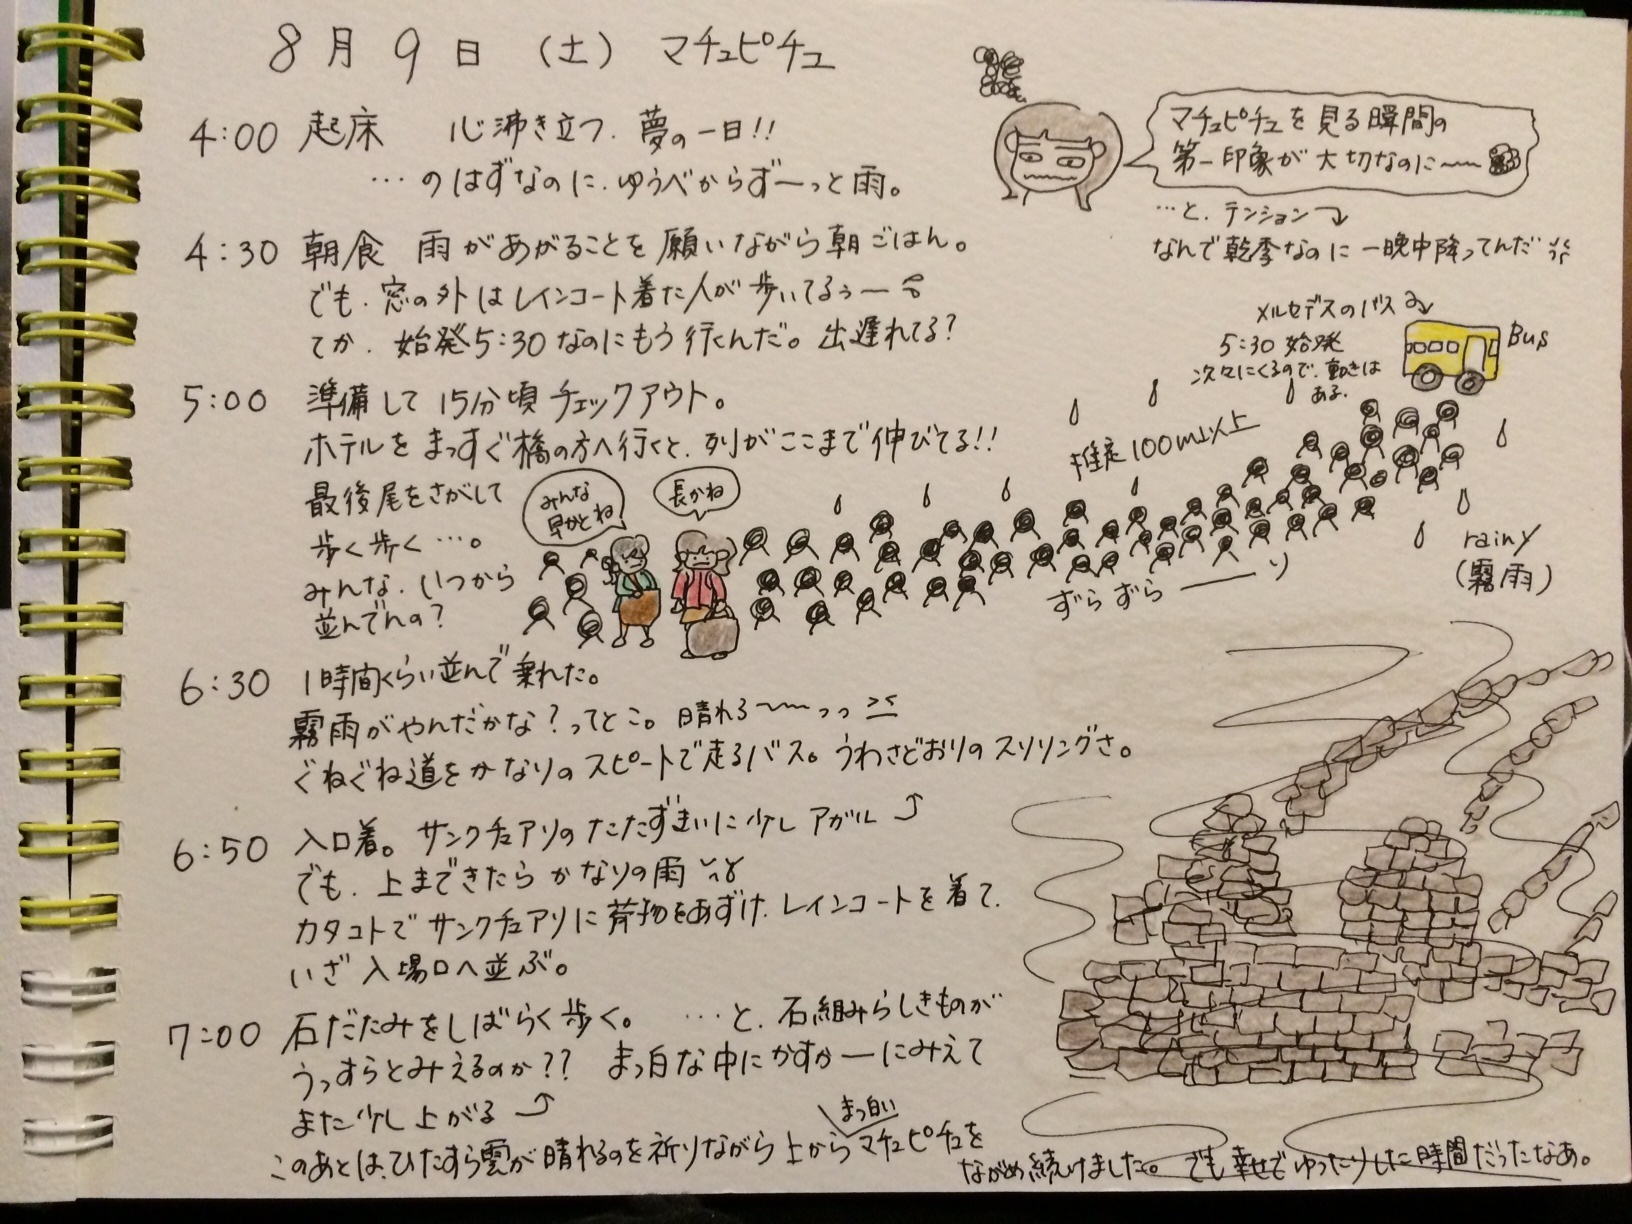 8月9日（土）マチュピチュ
4:00 起床 心沸き立つ、夢の一日!!
…のはずなのに、ゆうべからずーっと雨。
マチュピチュを見る瞬間の
第一印象が大切なのに〜〜
…と、テンション↘
なんで乾季なのに一晩中降ってんだ
4:30 朝食 雨があがることを願いながら朝ごはん。
でも、窓の外はレインコート着た人が歩いてるぅー
てか、始発5:30なのにもう行くんだ。出遅れてる?
メルセデスのバス
Bus
5:30 始発
次々にくるので、動きは
ある。
5:00 準備して15分頃チェックアウト。
ホテルをまっすぐ橋の方へ行くと、列がここまで伸びてる!!
最後尾をさがして
歩く歩く…。
みんな、いつから
並んでんの?
みんな
早かとね
長かね
推定100m以上
ずらずら――り
rainy
(霧雨)
6:30 1時間くらい並んで乗れた。
霧雨がやんだかな?ってとこ。晴れろ〜〜っっ
ぐねぐね道をかなりのスピードで走るバス。うわさどおりのスリリングさ。
6:50 入口着。サンクチュアリのたたずまいに少しアガル⤴
でも、上まできたらかなりの雨
カタコトでサンクチュアリに荷物をあずけ、レインコートを着て、
いざ入場口へ並ぶ。
7:00 石だたみをしばらく歩く。…と、石組みらしきものが
うっすらとみえるのか?? まっ白な中にかすかーにみえて
また少し上がる⤴
まっ白い
このあとは、ひたすら雲が晴れるのを祈りながら上からマチュピチュを
ながめ続けました。でも幸せでゆったりした時間だったなあ。